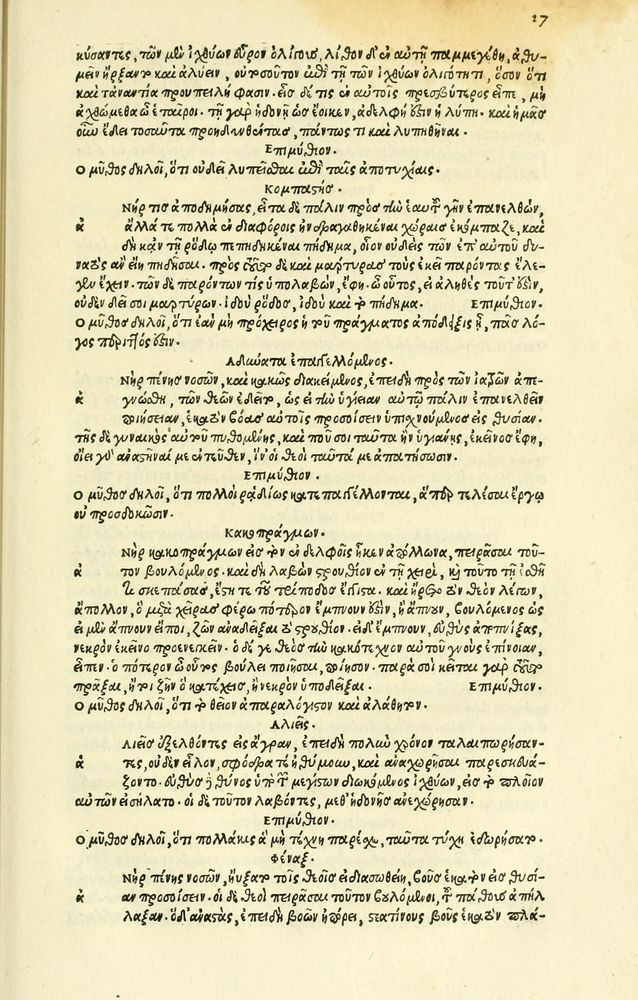 17
κύσαντες, τῶν μὲν ἰχθύων εὗρον ὀλίγους, λίθον δ' ἐν αὐτῇ παμμεγέθη, ἀθυ-
μεῖν ἤρξαντο καὶ ἀλύειν, οὐ τοσοῦτον ἐπὶ τῇ τῶν ἰχθύων ὀλιγότητι, ὅσον ὅτι
καὶ τἀναντία προυπειλήφασιν. εἷς δέ τις ἐν αὐτοῖς πρεσβύτερος εἶπε, μὴ
ἀχθώμεθα ὦ ἑταῖροι. τῇ γὰρ ἡδονῇ ὡς ἔοικεν, ἀδελφή ἐστιν ἡ λύπη. καὶ ἡμᾶς
οὖν ἔδει τοσαῦτα προησθέντας, πάντως τι καὶ λυπηθῆναι.
Επιμύθιον.
Ο μῦθος δηλοῖ, ὅτι οὐ δεῖ λυπεῖσθαι ἐπὶ ταῖς ἀποτυχίαις.
Κομπαστής.
Ανήρ τις ἀποδημήσας, εἶτα δὲ πάλιν πρὸς τὴν ἑαυτοῦ γῆν ἐπανελθών,
ἄλλά τε πολλὰ ἐν διαφόροις ἠνδραγαθηκέναι χώραις ἐκόμπαζε, καὶ
δὴ κἀν τῇ ῥόδῳ πεπηδηκέναι πήδημα, οἷον οὐδεὶς τῶν ἐπ' αὐτοῦ δυ-
νατὸς ἂν εἴη πηδῆσαι. πρὸς τοῦτο δὲ καὶ μάρτυρας τοὺς ἐκεῖ παρόντας ἔλε-
γεν ἔχειν. τῶν δὲ παρόντων τὶς ὑπολαβών, ἔφη. ὦ οὗτος, εἰ ἀληθὲς τοῦτ' ἐστιν,
οὐδὲν δεῖ σοι μαρτύρων. ἰδοὺ ῥόδος, ἰδοὺ καὶ τὸ πήδημα. Επιμύθιον.
Ο μῦθος δηλοῖ, ὅτι ἐὰν μὴ πρόχειρος ἡ τοῦ πράγματος ἀπόδειξις ᾖ, πᾶς λό-
γος περιττός ἐστιν.
Αδύνατα ἐπαγγελλόμενος.
Ανὴρ πένης νοσῶν, καὶ κακῶς διακείμενος, ἐπειδὴ πρὸς τῶν ἰατρῶν ἀπε-
γνώσθη, τῶν θεῶν ἐδεῖτο, ὡς εἰ τὴν ὑγίειαν αὐτῷ πάλιν ἐπανελθεῖν
ποιήσειαν, ἑκατὸν βόας αὐτοῖς προσοίσειν ὑπισχνούμενος εἰς θυσίαν.
τῆς δὲ γυναικὸς αὐτοῦ πυθομένης, καὶ ποῦ σοι ταῦτα ἢν ὑγιάνῃς, ἐκεῖνος ἔφη,
οἴει γὸ ἀναστῆναί με ἐντεῦθεν, ἵν' οἱ θεοὶ ταῦτά με ἀπαιτήσωσιν.
Επιμύθιον.
Ο μῦθος δηλοῖ, ὅτι πολλοὶ ῥᾳδίως κατεπαγγέλλονται, ἅπερ τελέσαι ἔργῳ
οὐ προσδοκῶσιν.
Κακοπράγμων.
Ανὴρ κακοπράγμων εἰς τὸν ἐν δελφοῖς ἧκεν ἀπόλλωνα, πειρᾶσαι τοῦ-
τον βουλόμενος. καὶ δὴ λαβὼν στρουθίον ἐν τῇ χειρὶ, καὶ τοῦτο τῇ ἐσθῆ-
τι σκεπάσας, ἔστη τε τοῦ τρίποδος ἔγγιστα. καὶ ἤρετο τὸν θεὸν λέγων,
ἄπολλον, ὃ μετὰ χεῖρας φέρω πότερον ἔμπνουν ἐστιν, ἢ ἄπνουν, βουλόμενος ὡς
εἰ μὲν ἄπνουν εἴποι, ζῶν ἀναδεῖξαι τὸ στρουθίον. εἰ δ' ἔμπνουν, εὐθὺς ἀποπνίξας,
νεκρὸν ἐκεῖνο προενεγκεῖν. ὁ δέ γε θεὸς τὴν κακότεχνον αὐτοῦ γνοὺς ἐπίνοιαν,
εἶπεν. ὁπότερον ὦ οὗτος βούλει ποιῆσαι, ποίησον. παρὰ σοὶ κεῖται γὰρ τοῦτο
πρᾶξαι, ἤτοι ζῆν ὃ κατέχεις, ἢ νεκρὸν ὑποδεῖξαι. Επιμύθιον.
Ο μῦθος δηλοῖ, ὅτι τὸ θεῖον ἀπαραλόγιστον καὶ ἀλάθητον.
Αλιεῖς.
Αλιεῖς ἐξελθόντες εἰς ἄγραν, ἐπειδὴ πολὺν χρόνον ταλαιπωρήσαν-
τες, οὐδὲν εἷλον, σφόδρα τε ἠθύμουν, καὶ ἀναχωρῆσαι παρεσκευά-
ζοντο. εὐθὺς δὲ θύννος ὑπό του μεγίστων διωκόμενος ἰχθύων, εἰς τὸ πλοῖον
αὐτῶν εἰσήλατο. οἱ δὲ τοῦτον λαβόντες, μεθ' ἡδονῆς ἀνεχώρησαν.
Επιμύθιον.
Ο μῦθος δηλοῖ, ὅτι πολλάκις ἃ μὴ τέχνη παρέσχε, ταῦτα τύχη ἐδωρήσατο.
Φέναξ.
Ανὴρ πένης νοσῶν, ηὔξατο τοῖς θεοῖς εἰ διασωθείη, βοῦς ἑκατὸν εἰς θυσί-
αν προσοίσειν. οἱ δὲ θεοὶ πειρᾶσαι τοῦτον βουλόμενοι, τοῦ πάθους ἀπήλ-
λαξαν. ὁ δ' ἀναστὰς, ἐπειδὴ βοῶν ἠπόρει, στατίνους βοῦς ἑκατὸν πλά-